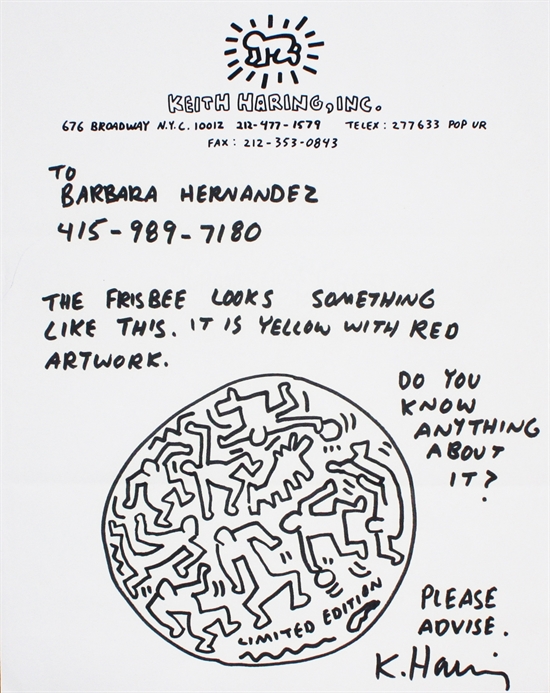 KEITH HARING, INC.
676 BROADWAY N.Y.C. 10012 212-477-1579 TELEX: 277633 POP UR
FAX: 212-353-0843
TO
BARBARA HERNANDEZ
415-989-7180
THE FRISBEE LOOKS SOMETHING
LIKE THIS. IT IS YELLOW WITH RED
ARTWORK.
DO YOU
KNOW
ANYTHING
ABOUT
IT?
LIMITED EDITION
PLEASE
ADVISE.
K. Haring